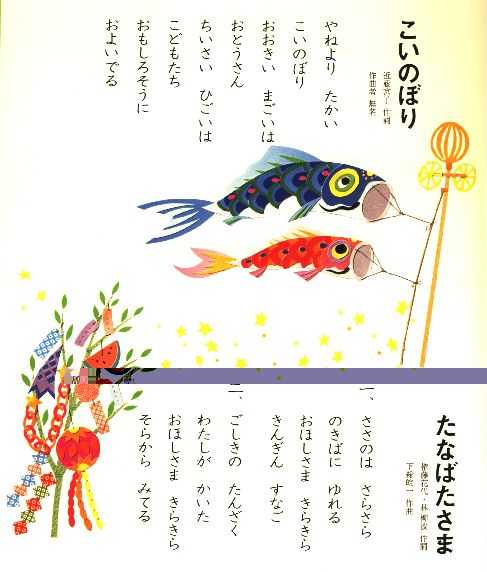 こいのぼり
近藤宮子 作詞
作曲者 無名
やねより たかい
こいのぼり
おおきい まごいは
おとうさん
ちいさい ひごいは
こどもたち
おもしろそうに
およいでる
たなばたさま
権藤花代・林 柳波 作詞
下総皖一 作曲
一、
ささのは さらさら
のきばに ゆれる
おほしさま きらきら
きんぎん すなご
二、
ごしきの たんざく
わたしが かいた
おほしさま きらきら
そらから みてる